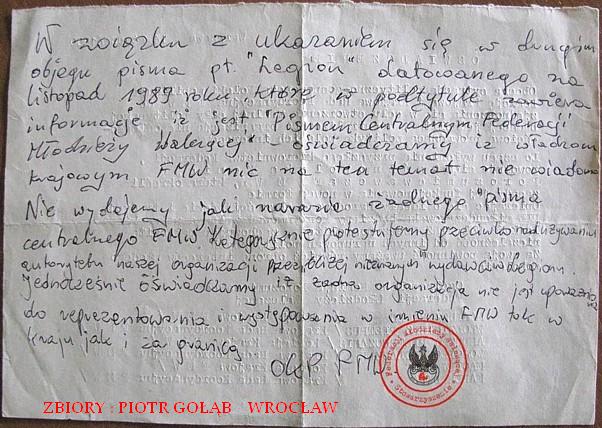 W związku z ukazaniem się w drugim
obiegu pisma pt. "Legion" datowanego na
listopad 1989 roku, które w podtytule zawiera
informację iż jest "Pismem Centralnym Federacji
Młodzieży Walczącej" - oświadczamy iż władzom
krajowym FMW nic na ten temat nie wiadomo
Nie wydajemy jak narazie żadnego "pisma
centralnego FMW. Kategorycznie protestujemy przeciwko nadużywaniu
autorytetu naszej organizacji przez bliżej nieznanych wydawców Legionu.
Jednocześnie oświadczamy iż żadna organizacja nie jest upoważniona
do reprezentowania i występowania w imieniu FMW tak w
kraju jak i za granicą
FMW
Federacji Młodzieży Walczącej
Stowarzyszenie
ZBIORY : PIOTR GOŁĄB WROCŁAW